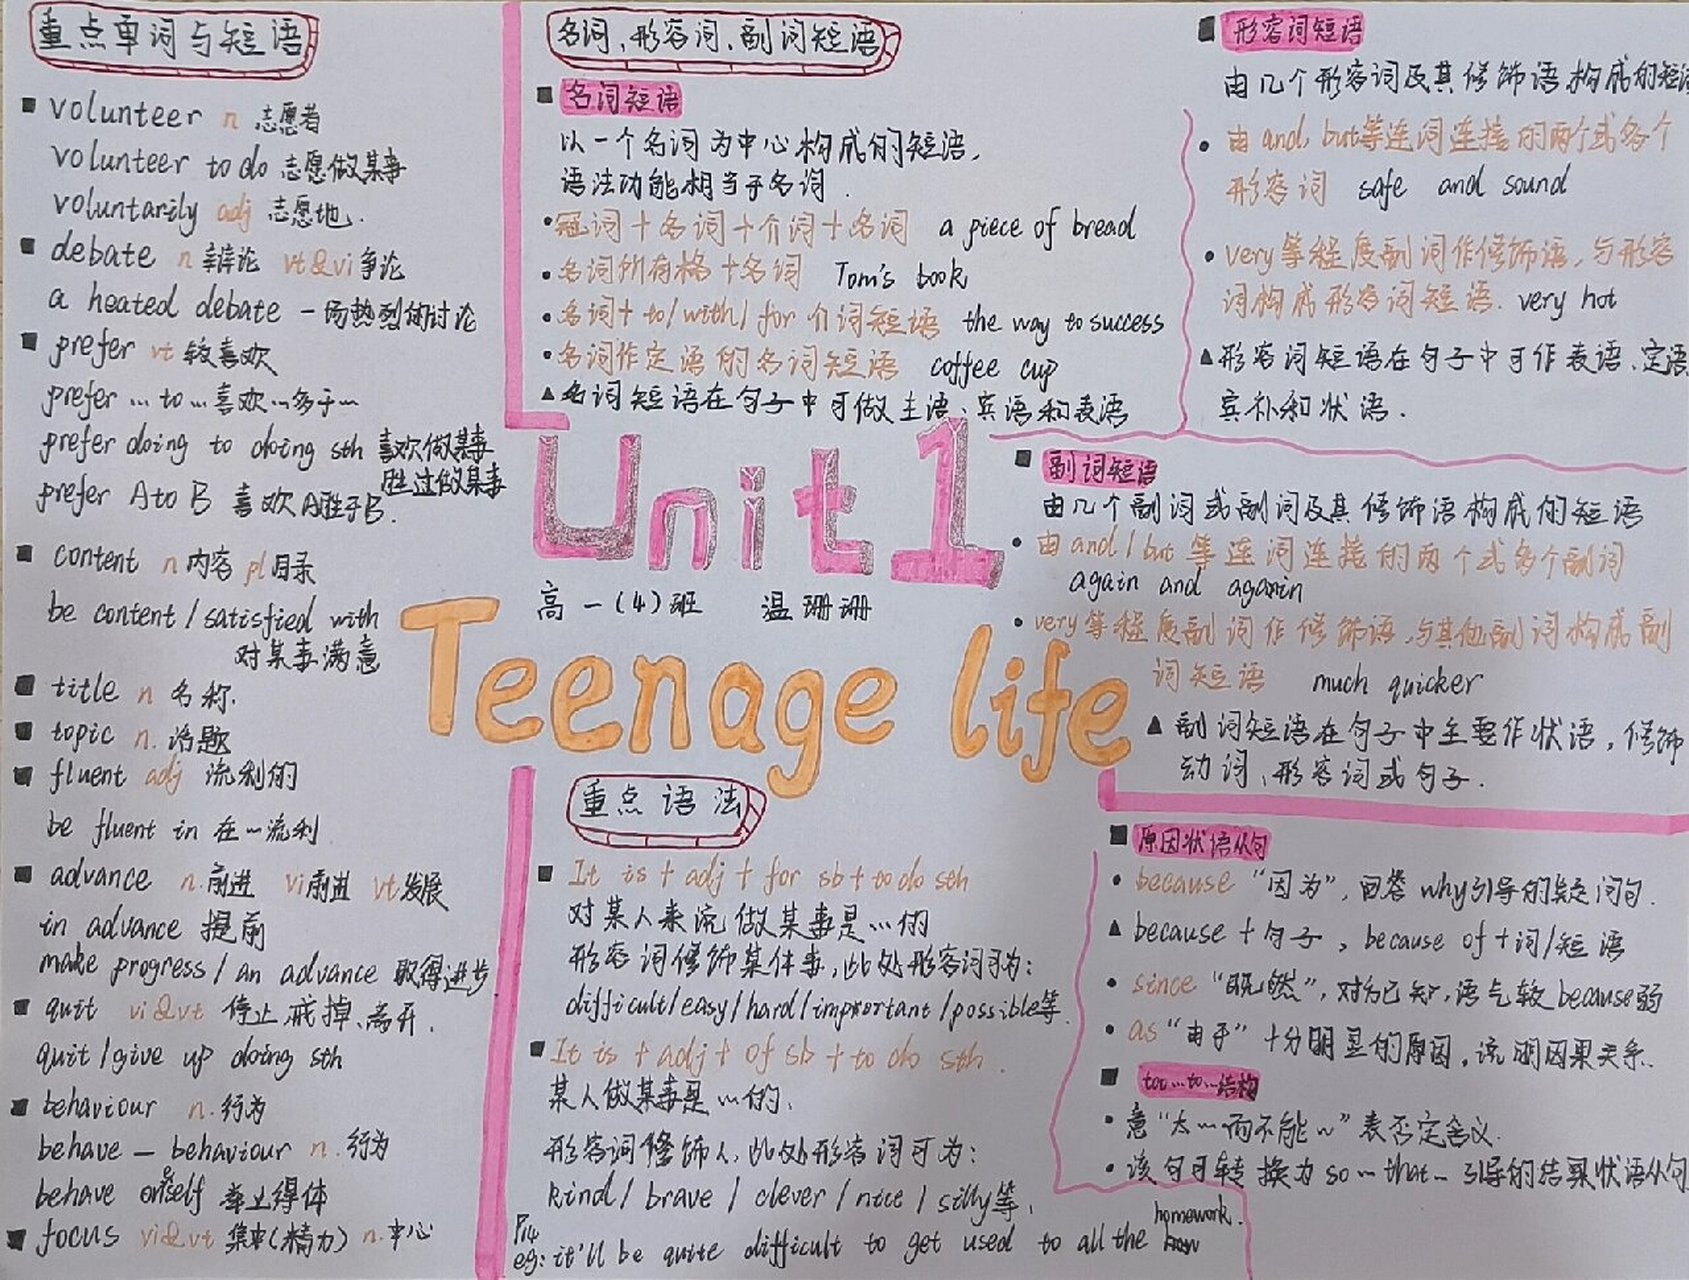 重点单词与短语
volunteer n 志愿者
volunteer to do 志愿做某事
voluntarily adj 志愿地.
debate n 辩论 vt&vi 争论
a heated debate 一场热烈的讨论
prefer vt 较喜欢
prefer ... to ... 喜欢...多于...
prefer doing to doing sth 喜欢做某事
胜过做某事
prefer A to B 喜欢A胜于B.
content n 内容 pl 目录
be content / satisfied with
对某事满意
title n 名称.
topic n. 话题
fluent adj 流利的
be fluent in 在...流利
advance n.前进 vi前进 vt发展
in advance 提前
make progress / an advance 取得进步
quit vi&vt 停止.戒掉、离开.
quit / give up doing sth
behaviour n. 行为
behave — behaviour n. 行为
behave oneself 举止得体
focus vi&vt 集中(精力) n.中心
名词、形容词、副词短语
名词短语
以一个名词为中心构成的短语,
语法功能相当于名词.
冠词+名词+介词+名词 a piece of bread
名词所有格+名词 Tom's book
名词+ to/ with/ for 介词短语 the way to success
名词作定语的名词短语 coffee cup
名词短语在句子中可做主语、宾语和表语
形容词短语
由几个形容词及其修饰语构成的短语
由 and, but等连词连接的两个或多个
形容词 safe and sound
very等程度副词作修饰语,与形容
词构成形容词短语. very hot
形容词短语在句子中可作表语、定语
宾补和状语.
副词短语
由几个副词或副词及其修饰语构成的短语
由 and / but 等连词连接的两个或多个副词
again and again
very等程度副词作修饰语,与其他副词构成副
词短语 much quicker
副词短语在句子中主要作状语, 修饰
动词、形容词或句子.
Unit1
高一(4)班 温珊珊
Teenage life
重点语法
It is + adj + for sb + to do sth
对某人来说做某事是...的
形容词修饰某件事,此处形容词可为:
difficult/easy/hard/important/possible等.
It is + adj + of sb + to do sth.
某人做某事是...的.
形容词修饰人,此处形容词可为:
kind / brave / clever / nice / silly等.
P14
eg: it'll be quite difficult to get used to all the homework.
原因状语从句
because "因为", 回答 why引导的疑问句.
because + 句子, because of +词/短语
since "既然", 对方已知,语气较because弱
as "由于" 十分明显的原因,说明因果关系.
too...to...结构
意"太...而不能..."表否定含义.
该句可转换为so...that...引导的结果状语从句